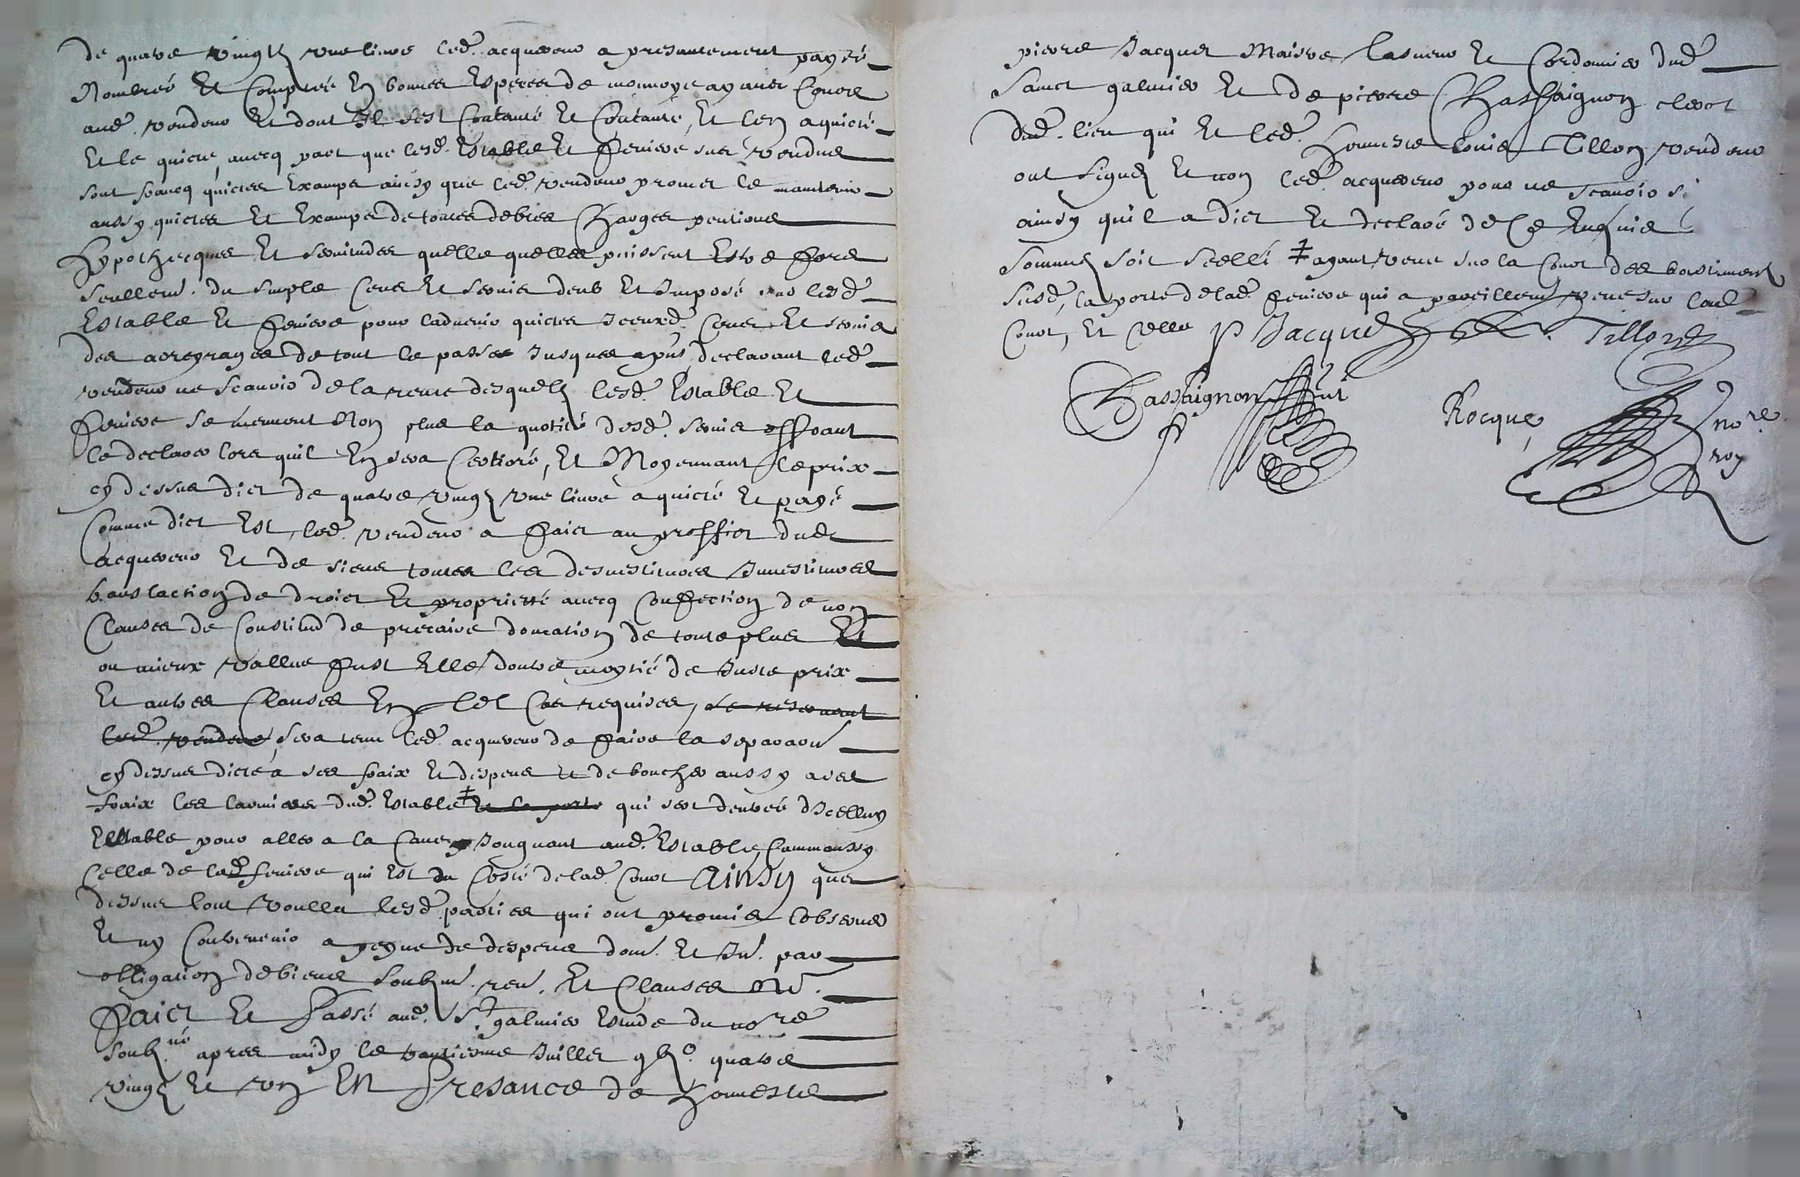 de quatre vingtz une livre led. acquereur a presantement payé
Nombré Et Compté En bonnes Especes de monnoye ayant Cours
aud. vendeur Et dont Il s'est Contanté Et Contante, Et len a quicté
Et le quicte avecq pact que lesd. Estable Et feniere sus vendus
sont francq quictes Exampz ainsy que led. vendeur promet le maintenir
aussy quictes Et Exampz de toutes debtes Charges pentions
Hypothecques Et servitudes quelle quelles puissent Estre fors
seullemt. du simple Cens Et servis deub Et Imposé sur lesd.
Estable Et feniere pour ladvenir quictes Iceuxd. Cens Et servis
des arreyrages de tout le passé Jusques a pnt, declarant led.
vendeur ne scavoir de la rente desquelz lesd. Estable Et
feniere se meuvent Non plus la quotité desd. servis offrant
le declarer lors quil En sera Certioré, Et Moyennant le prix
cy dessus dict de quatre vingtz une livre a quicté Et payé
Comme dict Est, led. vendeur a faict au proffict dud.
acquereur Et de siens toutes les desvestitures Investitures
translaction de droict Et proprietté avecq Confection de non
Clauses de Constitud de precaire donnation de toute plus
ou mieux vallue fust Elle doutre moytié de Juste prix
Et autres Clauses En tel Cas requises, se reservant
led. vendeur, sera tenu led. acquereur de faire la separaon
cy dessus dicte a ses fraix Et despens Et de boucher aussy a ses
fraix les larmiers dud. Estable ‡ Et la porte qui sort dentrée dIcelluy
Estable pour aller a la Cave Joignant aud. Estable, Comm aussy
Celle de lad. feniere qui Est du Costé de lad. Court Ainsy que
dessus lont voullu lesd. parties qui ont promis lobserver
Et ny Contrevenir a peyne de despens dom. Et In. par
obligation de biens soubzm. ren. Et Clauses
Faict Et Passé aud. St galmier Estude du nore
soubz.né apres midy le Juillet gbzc. quatre
vingtz Et un En Presance de honneste
pierre Jacquet Maistre Et Cordonnier dud.
Sainct galmier Et de pierre Chassaignon clerc
dud. lieu qui Et led. honneste Louis Tillon vendeur
ont signez Et non led. acquereur pour ne scavoir
ainsy quil a dict Et declaré de Ce Enquis
Sommez soit scellé ‡ ayant veue sur la Court des bastiments
susd., la porte de lad. feniere qui a pareillemt. veue sur lad.
Court, Et Celle P Jacquet Tillon
Chassaignon pnt
Rocque, nore. roy